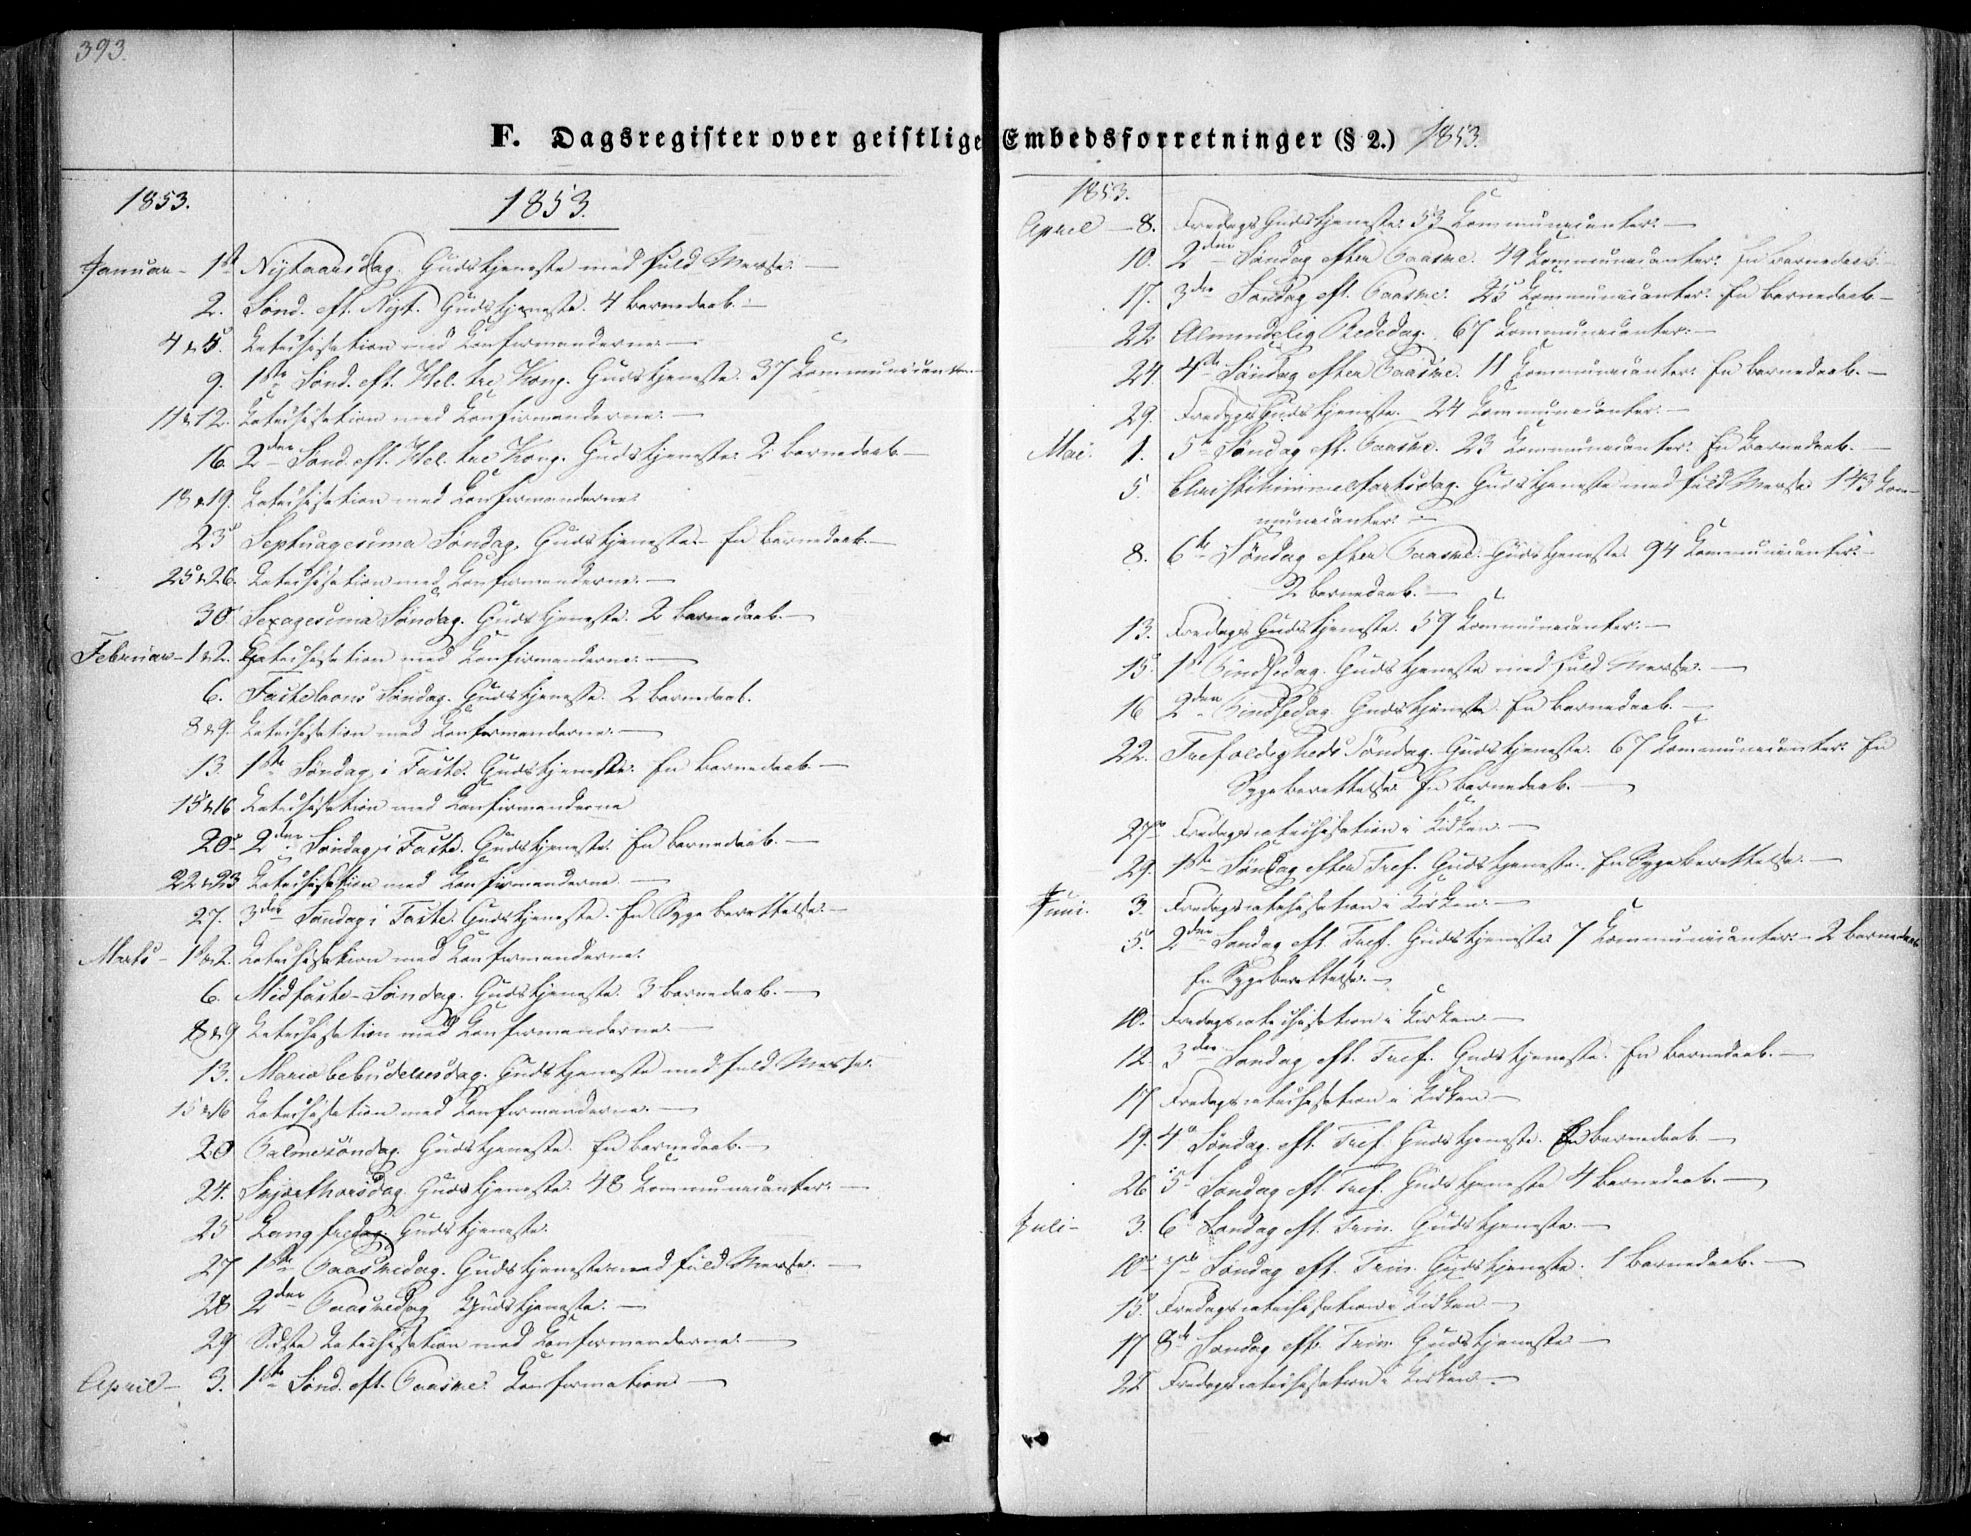 393.
F. Dagsregister over geistlige Embedsforretninger (§ 2.) 1853.
1853. 1853.
Januar - 1ste Nytaarsdag. Gudstjeneste med fuld Messe. —
2. Sönd. eft. Nyt. Gudstjeneste. 4 Barnedaab. —
4 & 5. Catechisation med Confirmanderne. —
9. 1ste Sönd. eft. Hel. tre Kong. Gudstjeneste. 37 Communicanter. —
11 & 12. Catechisation med Confirmanderne. —
16. 2den Sönd. eft. Hel. tre Kong. Gudstjeneste. 2 Barnedaab. —
18 & 19. Catechisation med Confirmanderne.
23 Septuagesima Söndag. Gudstjeneste. En Barnedaab. —
25 & 26. Catechisation med Confirmanderne. —
30 Sexagesima Söndag. Gudstjeneste. 2 Barnedaab. —
Februar - 1 & 2. Catechisation med Confirmanderne. —
6. Fastelavns Söndag. Gudstjeneste. 2 Barnedaab.
8 & 9. Catechisation med Confirmanderne. —
13. 1ste Söndag i Faste. Gudstjeneste. En Barnedaab. —
15 & 16. Catechisation med Confirmanderne
20 - 2den Söndag i Faste. Gudstjeneste. En Barnedaab. —
22 & 23 Catechisation med Confirmanderne. —
27. 3die Söndag i Faste. Gudstjeneste. En Sygeberettelse. —
Marts - 1 & 2. Catechisation med Confirmanderne.
6. Midfaste-Söndag. Gudstjeneste. 3 Barnedaab. —
8 & 9 Catechisation med Confirmanderne. —
13. Mariæ bebudelsesdag. Gudstjeneste med fuld Messe.
15 & 16 Catechisation med Confirmanderne. —
20 Palmesöndag. Gudstjeneste. En Barnedaab. —
24. Skjærthorsdag. Gudstjeneste. 48 Communicanter. —
25 Langfredag Gudstjeneste.
27 1ste Paaskedag. Gudstjeneste med fuld Messe. —
28 2den Paaskedag Gudstjeneste. —
29 Sidste Catechisation med Confirmanderne. —
April - 3. 1ste Sönd. eft. Paaske. Confirmation —
1853.
April - 8. Fredags Gudstjeneste. 53 Communicanter. —
10. 2den Söndag efter Paaske. 49 Communicanter. En Barnedaab. —
17. 3die Söndag eft. Paaske. 25 Communicanter. En Barnedaab —
22 Almindelig Bededag. 67 Communicanter. —
24 4de Söndag efter Paaske. 11 Communicanter. En Barnedaab. —
29. Fredags Gudstjeneste. 24 Communicanter. —
Mai. 1. 5te Söndag eft. Paaske. 23 Communicanter. En Barnedaab. —
5. Christi Himmelfartsdag. Gudstjeneste med fuld Messe 143 Com-
municanter. —
8. 6te Söndag efter Paaske. Gudstjeneste. 94 Communicanter. —
2 Barnedaab. —
13. Fredags Gudstjeneste. 59 Communicanter. —
15. 1ste Pindsedag. Gudstjeneste med fuld Messe. —
16 2den Pindsedag. Gudstjeneste En Barnedaab. —
22. Trefoldigheds Söndag. Gudstjeneste. 67 Communicanter. En
Sygeberettelse. En Barnedaab. —
27 Fredagscatechisation i Kirken —
29. 1ste Söndag efter Tref. Gudstjeneste. En Sygeberettelse. —
Juni. 3. Fredagscatechisation i Kirken. —
5. 2den Söndag eft. Tref. Gudstjeneste 7 Communicanter. - 2 Barnedaab
En Sygeberettelse. —
10. Fredagscatechisation i Kirken —
12. 3die Söndag eft. Tref. Gudstjeneste. En Barnedaab. —
17 Fredagscatechisation i Kirken —
19. 4de Söndag. eft. Tref. Gudstjeneste. En Barnedaab. —
26 5te Söndag eft. Tref. Gudstjeneste 4 Barnedaab. —
Juli - 3. 6te Söndag eft. Trin. Gudstjeneste. —
10 7de Söndag eft. Trin. Gudstjeneste. 1 Barnedaab. —
15. Fredagscatechisation i Kirken —
17 8de Söndag eft. Trin. Gudstjeneste —
22 Fredagscatechisation i Kirken —